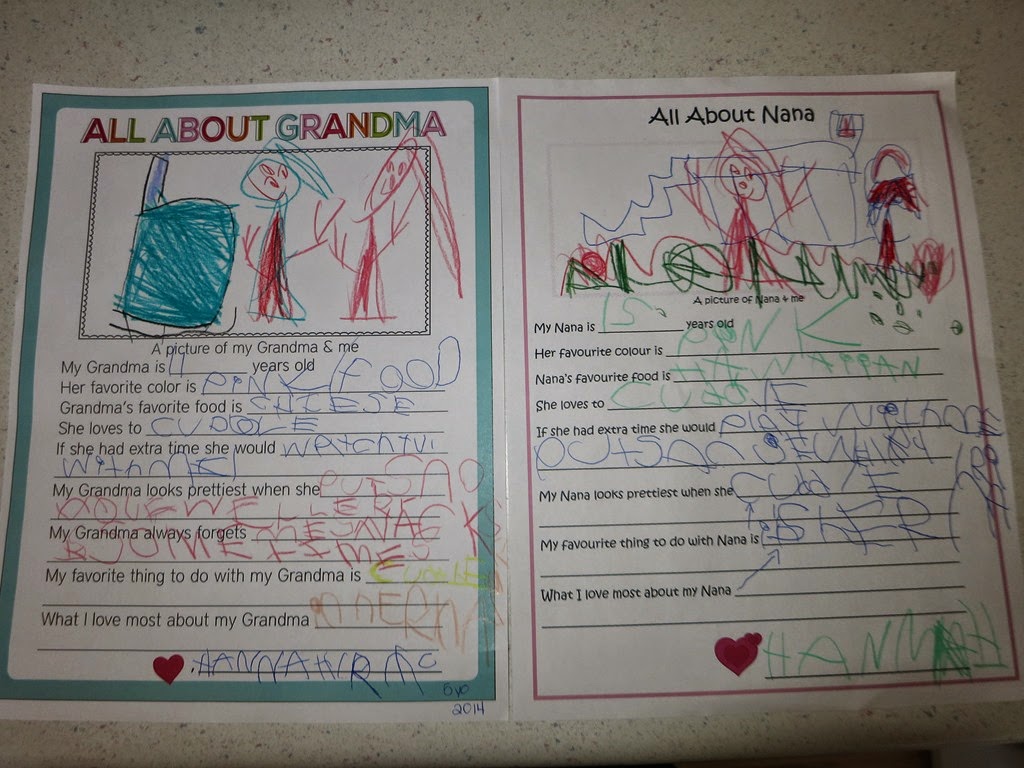 ALL ABOUT GRANDMA
A picture of my Grandma & me
My Grandma is years old
Her favorite color is PINK
Grandma's favorite food is CHIESE FOOD
She loves to CUDDLE
If she had extra time she would WATCH TV
WITH ME
My Grandma looks prettiest when she PUTS ON
My Grandma always forgets THE SNACKS
SOMETIMES
My favorite thing to do with my Grandma is
What I love most about my Grandma
HANNAH
5yo
2014
All About Nana
A picture of Nana & me
My Nana is 15 years old
Her favourite colour is PINK
Nana's favourite food is HAWAIIAN
She loves to
If she had extra time she would PLAY WITH ME
My Nana looks prettiest when she
My favourite thing to do with Nana is
What I love most about my Nana
IS HER
HANNAH